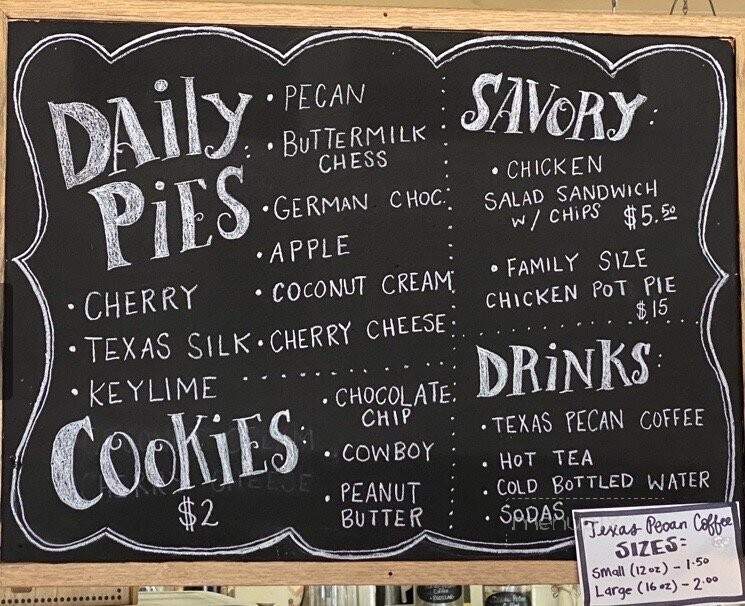 DAily
PiES:
• PECAN
• BUTTERMILK
CHESS
• GERMAN CHOC.
• APPLE
• COCONUT CREAM
• CHERRY CHEESE
• CHERRY
• TEXAS SILK
• KEYLIME
COOKiES:
$2
• CHOCOLATE
CHIP
• COWBOY
• PEANUT
BUTTER
SAVORY:
• CHICKEN
SALAD SANDWICH
W/ CHiPS $5.50
• FAMILY SIZE
CHICKEN POT PIE
$15
DRiNKS:
• TEXAS PECAN COFFEE
• HOT TEA
• COLD BOTTLED WATER
• SODAS
Texas Pecan Coffee
SIZES:
Small (12 oz) - 1.50
Large (16 oz) - 2.00